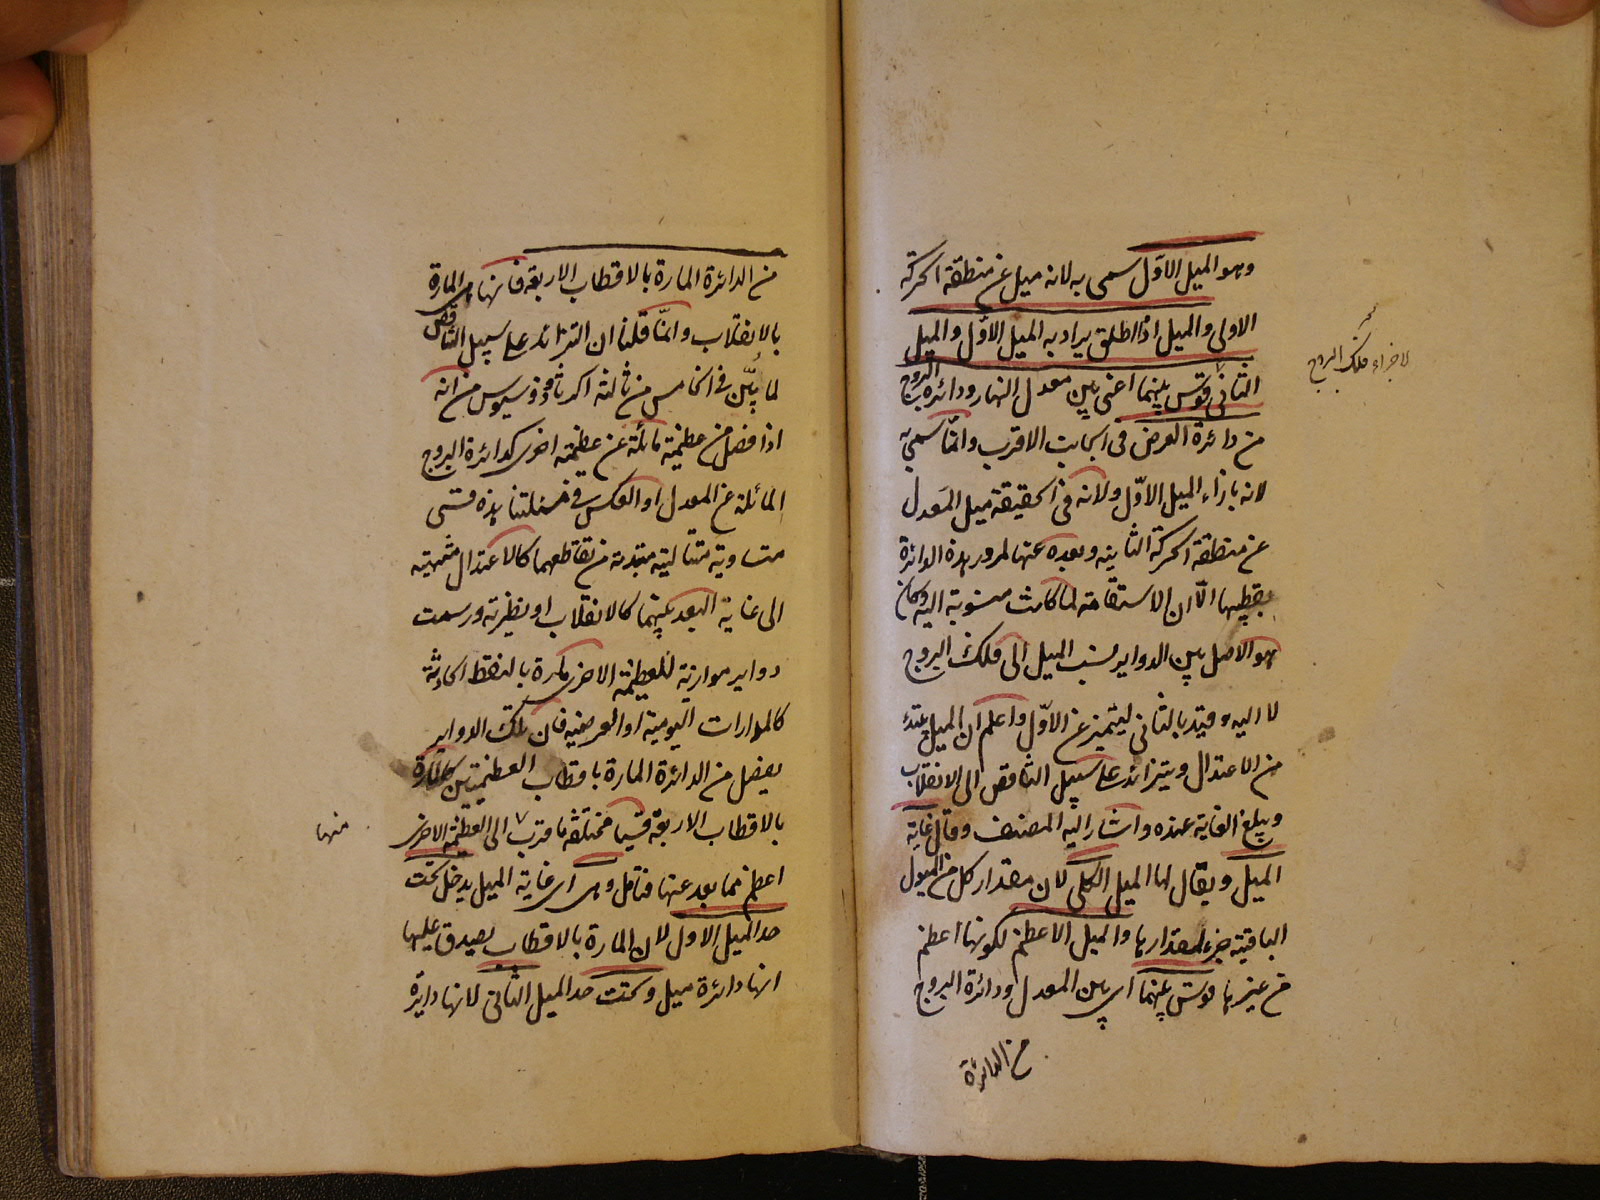 وهو الميل الاوّل سمى به لانه ميل عن منطقة الحركة
الاولى والميل اذا اطلق يراد به الميل الاوّل والميل
الثانى قوس بينهما اعنى بين معدل النهار ودائرة البروج
من دائرة العرض فى الجانب الاقرب وانّما سمى به
لانه بازاء الميل الاوّل ولانه فى الحقيقة ميل المعدل
عن منطقة الحركة الثانية وبعده عنها لمرور هذه الدائرة
بقطبيها الّا ان الاستقامة لما كانت منسوبة اليه وكان
هو الاصل بين الدواير نسب الميل الى فلك البروج
لا اليه وقيد بالثانى ليتميز عن الاوّل واعلم ان الميل يبتدء
من الاعتدال ويتزائد على سبيل التناقص الى الانقلاب
ويبلغ الغاية عنده واشار اليه المصنف وقال غاية
الميل ويقال لها الميل الكلى لان مقدار كل من الميول
الباقية جزء لمقدارها والميل الاعظم لكونها اعظم
من غيرها قوس بينهما اى بين المعدل ودائرة البروج
من الدائرة
لاجزاء فلك البروج
من الدائرة المارة بالاقطاب الاربعة فانها هى المارة
بالانقلاب وانّما قلنا ان التزائد على سبيل التناقص
لما بيّن فى الخامس من ثالثة اكر ثاوذوسيوس من انه
اذا فصل من عظيمة مائلة عن عظيمة اخرى كدائرة البروج
المائلة عن المعدل او العكس فى مسئلتنا هذه قسى
متساوية متتالية مبتدئة من تقاطعهما كالاعتدال منتهية
الى غاية البعد بينهما كالانقلاب او نظيرته ورسمت
دواير موازية للعظيمة الاخرى مارة بالنقط الحادثة
كالمدارات اليومية او العرضية فان تلك الدواير
يفصل من الدائرة المارة باقطاب العظيمتين كالمارة
بالاقطاب الاربعة قسيا مختلفة ما قرب الى العظيمة الاخرى
منها
اعظم مما بعد عنها فتامل وهى اى غاية الميل يدخل تحت
حد الميل الاول لان المارة بالاقطاب يصدق عليها
انها دائرة ميل وتحت حد الميل الثانى لانها دايرة